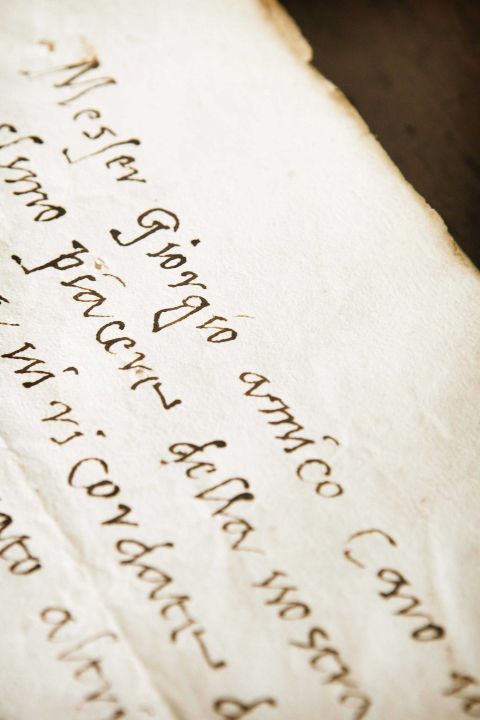 Messer Giorgio amico Caro
piacere della vostra
vi ricordate
altri